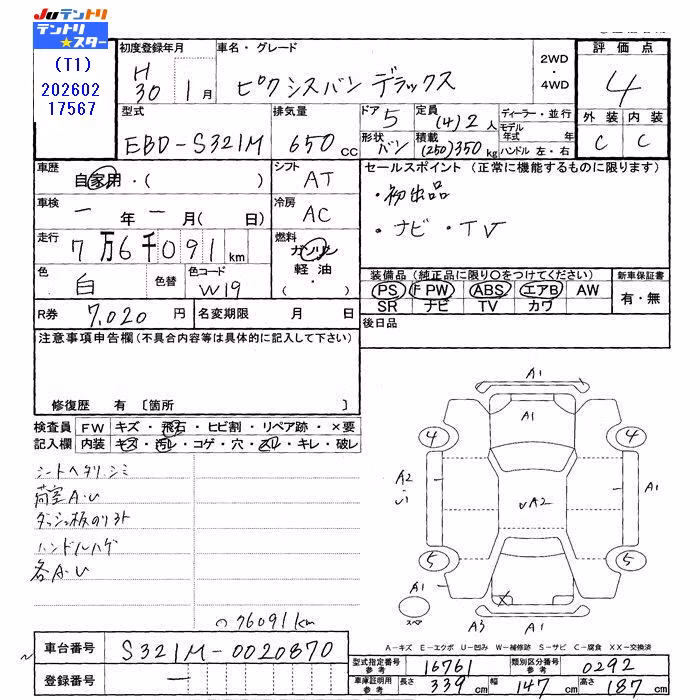 JUテントリ
テントリ
★スター
(T1)
202602
17567
初度登録年月
H30年 1月
車名・グレード
ピクシスバン デラックス
2WD
・
4WD
評価点
4
外装 内装
C C
型式
EBD-S321M
排気量
650 cc
ドア 5
形状 バン
定員 (4) 2 人
積載 (250) 350 kg
ディーラー・並行
モデル年式 年
ハンドル 左・右
車歴
自家用・( )
シフト
AT
車検
ー年ー月( 日)
冷房
AC
走行
7万6千091km
燃料
ガソリン
軽油・
( )
色
白
色替
色コード
W19
R券 7,020 円
名変期限 月 日
セールスポイント (正常に機能するものに限ります)
・初出品
・ナビ・TV
装備品 (純正品に限り○をつけてください)
PS PW ABS エアB AW
SR ナビ TV カワ
新車保証書
有・無
後日品
注意事項申告欄(不具合内容等は具体的に記入して下さい)
修復歴 有 〔箇所 〕
検査員 FW キズ・飛石・ヒビ割・リペア跡・×要
記入欄 内装 キズ・汚れ・コゲ・穴・スレ・キレ・破レ
シートヘタリ.シミ
荷室A.U
ダッシュ板のリフト
ハンドルハゲ
各A.U
の76091km
車台番号 S321M-0020870
登録番号 ー
A1
A1
4 4
A2
・U1
A1
UA2
5 5
A1
X
スペア
A3 A1
A1
A-キズ E-エクボ U-凹み W-補修跡 S-サビ C-腐食 XX-交換済
型式指定番号 参考 16761
類別区分番号 参考 0292
車庫証明用 参考 長さ 339 cm 幅 147 cm 高さ 187 cm